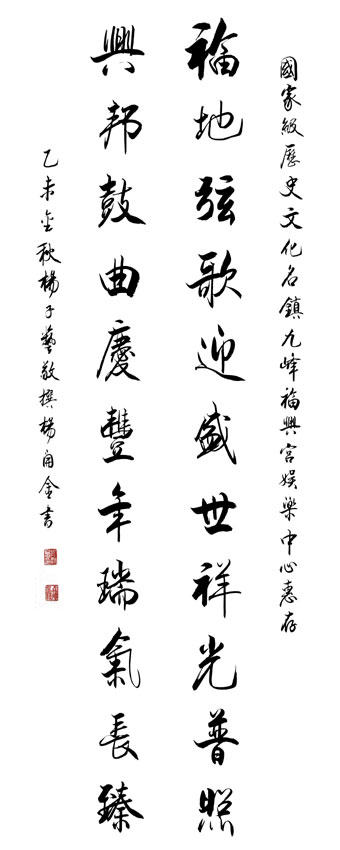 國家級歷史文化名鎮九峰福興宮娛樂中心惠存
福地弦歌迎盛世祥光普照
興邦鼓曲慶豐年瑞氣長臻
乙未金秋楊子藝敬撰楊自金書